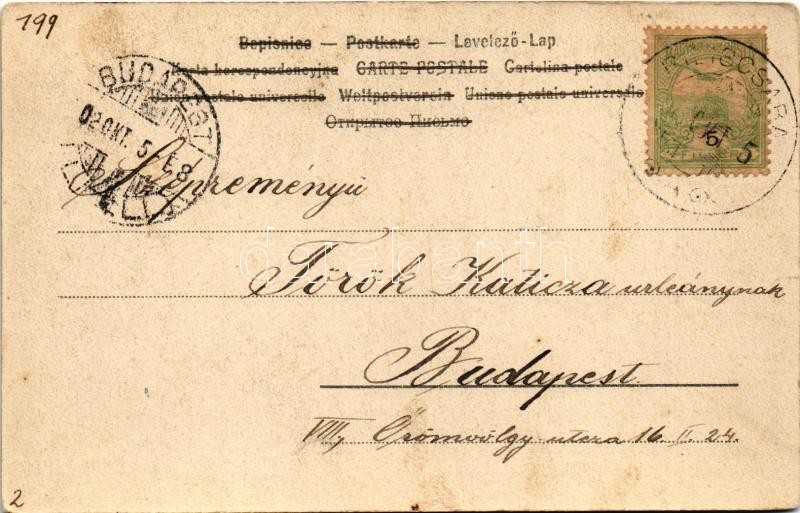 199
Dopisnice — Postkarte — Levelező-Lap
Karta korespondencyjna CARTE POSTALE Cartolina postale
Union postale universelle Weltpostverein Unione postale universale
Открытое Письмо
BUDAPEST
02 OKT. 5
5
Szépreményű
Török Katicza urleánynak
Budapest
VIII, Örömvölgy utcza 16. II. 24.
2
darabanth.com